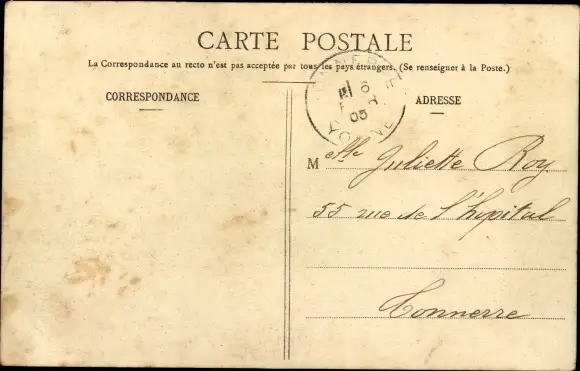 CARTE POSTALE
La Correspondance au recto n'est pas acceptée par tous les pays étrangers. (Se renseigner à la Poste.)
CORRESPONDANCE
ADRESSE
6
05
YONNE
Melle Juliette Roy
55 rue de l'hopital
Tonnerre